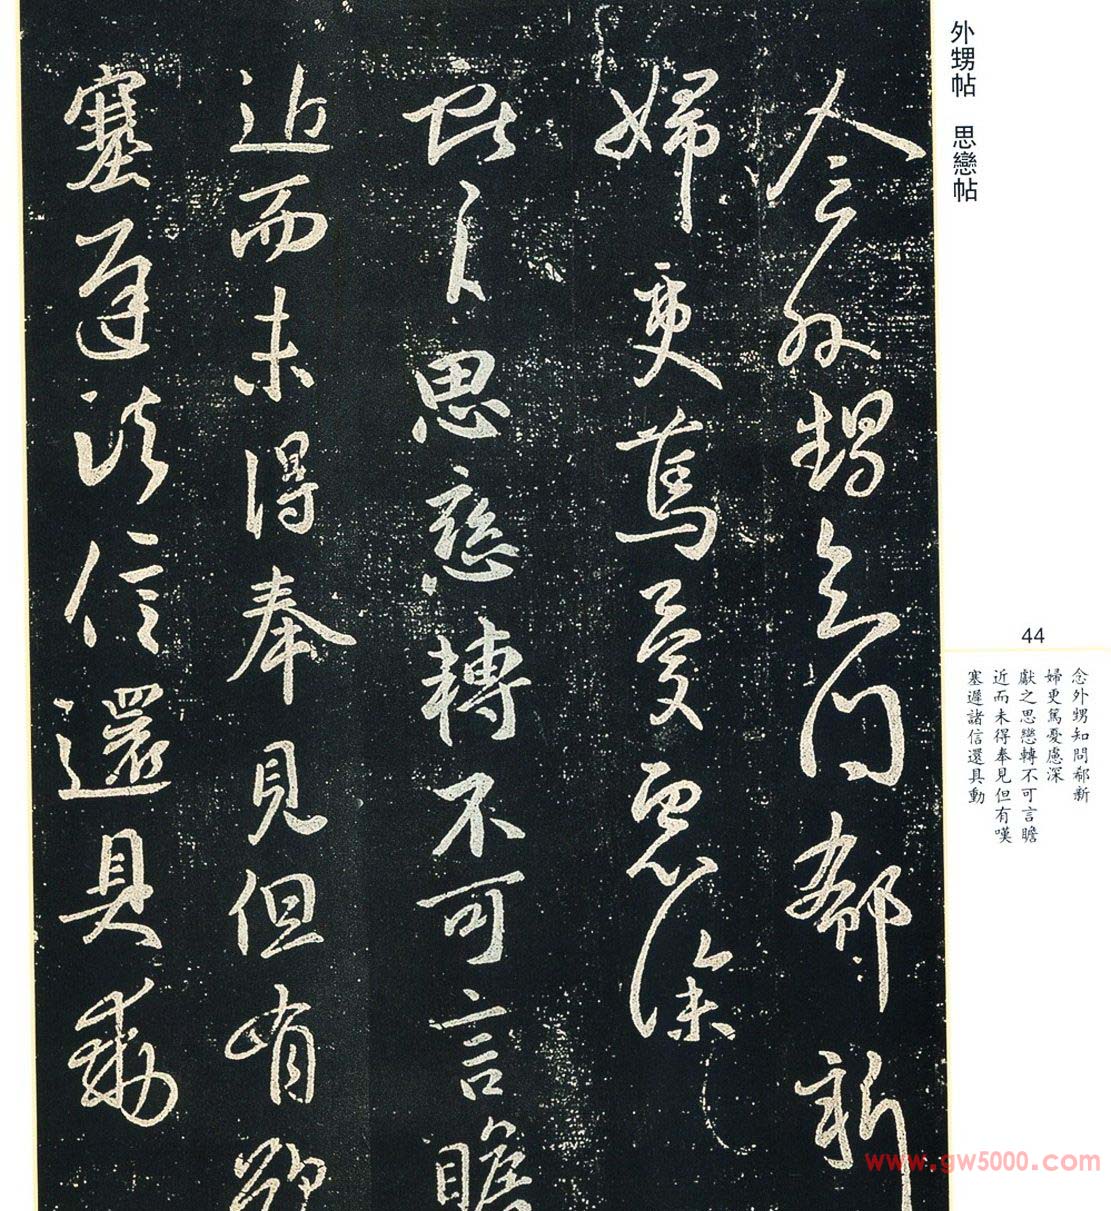 外甥帖　思戀帖
念外甥知問郗新
婦更篤憂慮深
獻之思戀轉不可言瞻
近而未得奉見但有歎
塞遲諸信還具動
44
念外甥知問郗新
婦更篤憂慮深
獻之思戀轉不可言瞻
近而未得奉見但有嘆
塞遲諸信還具動
www.gw5000.com